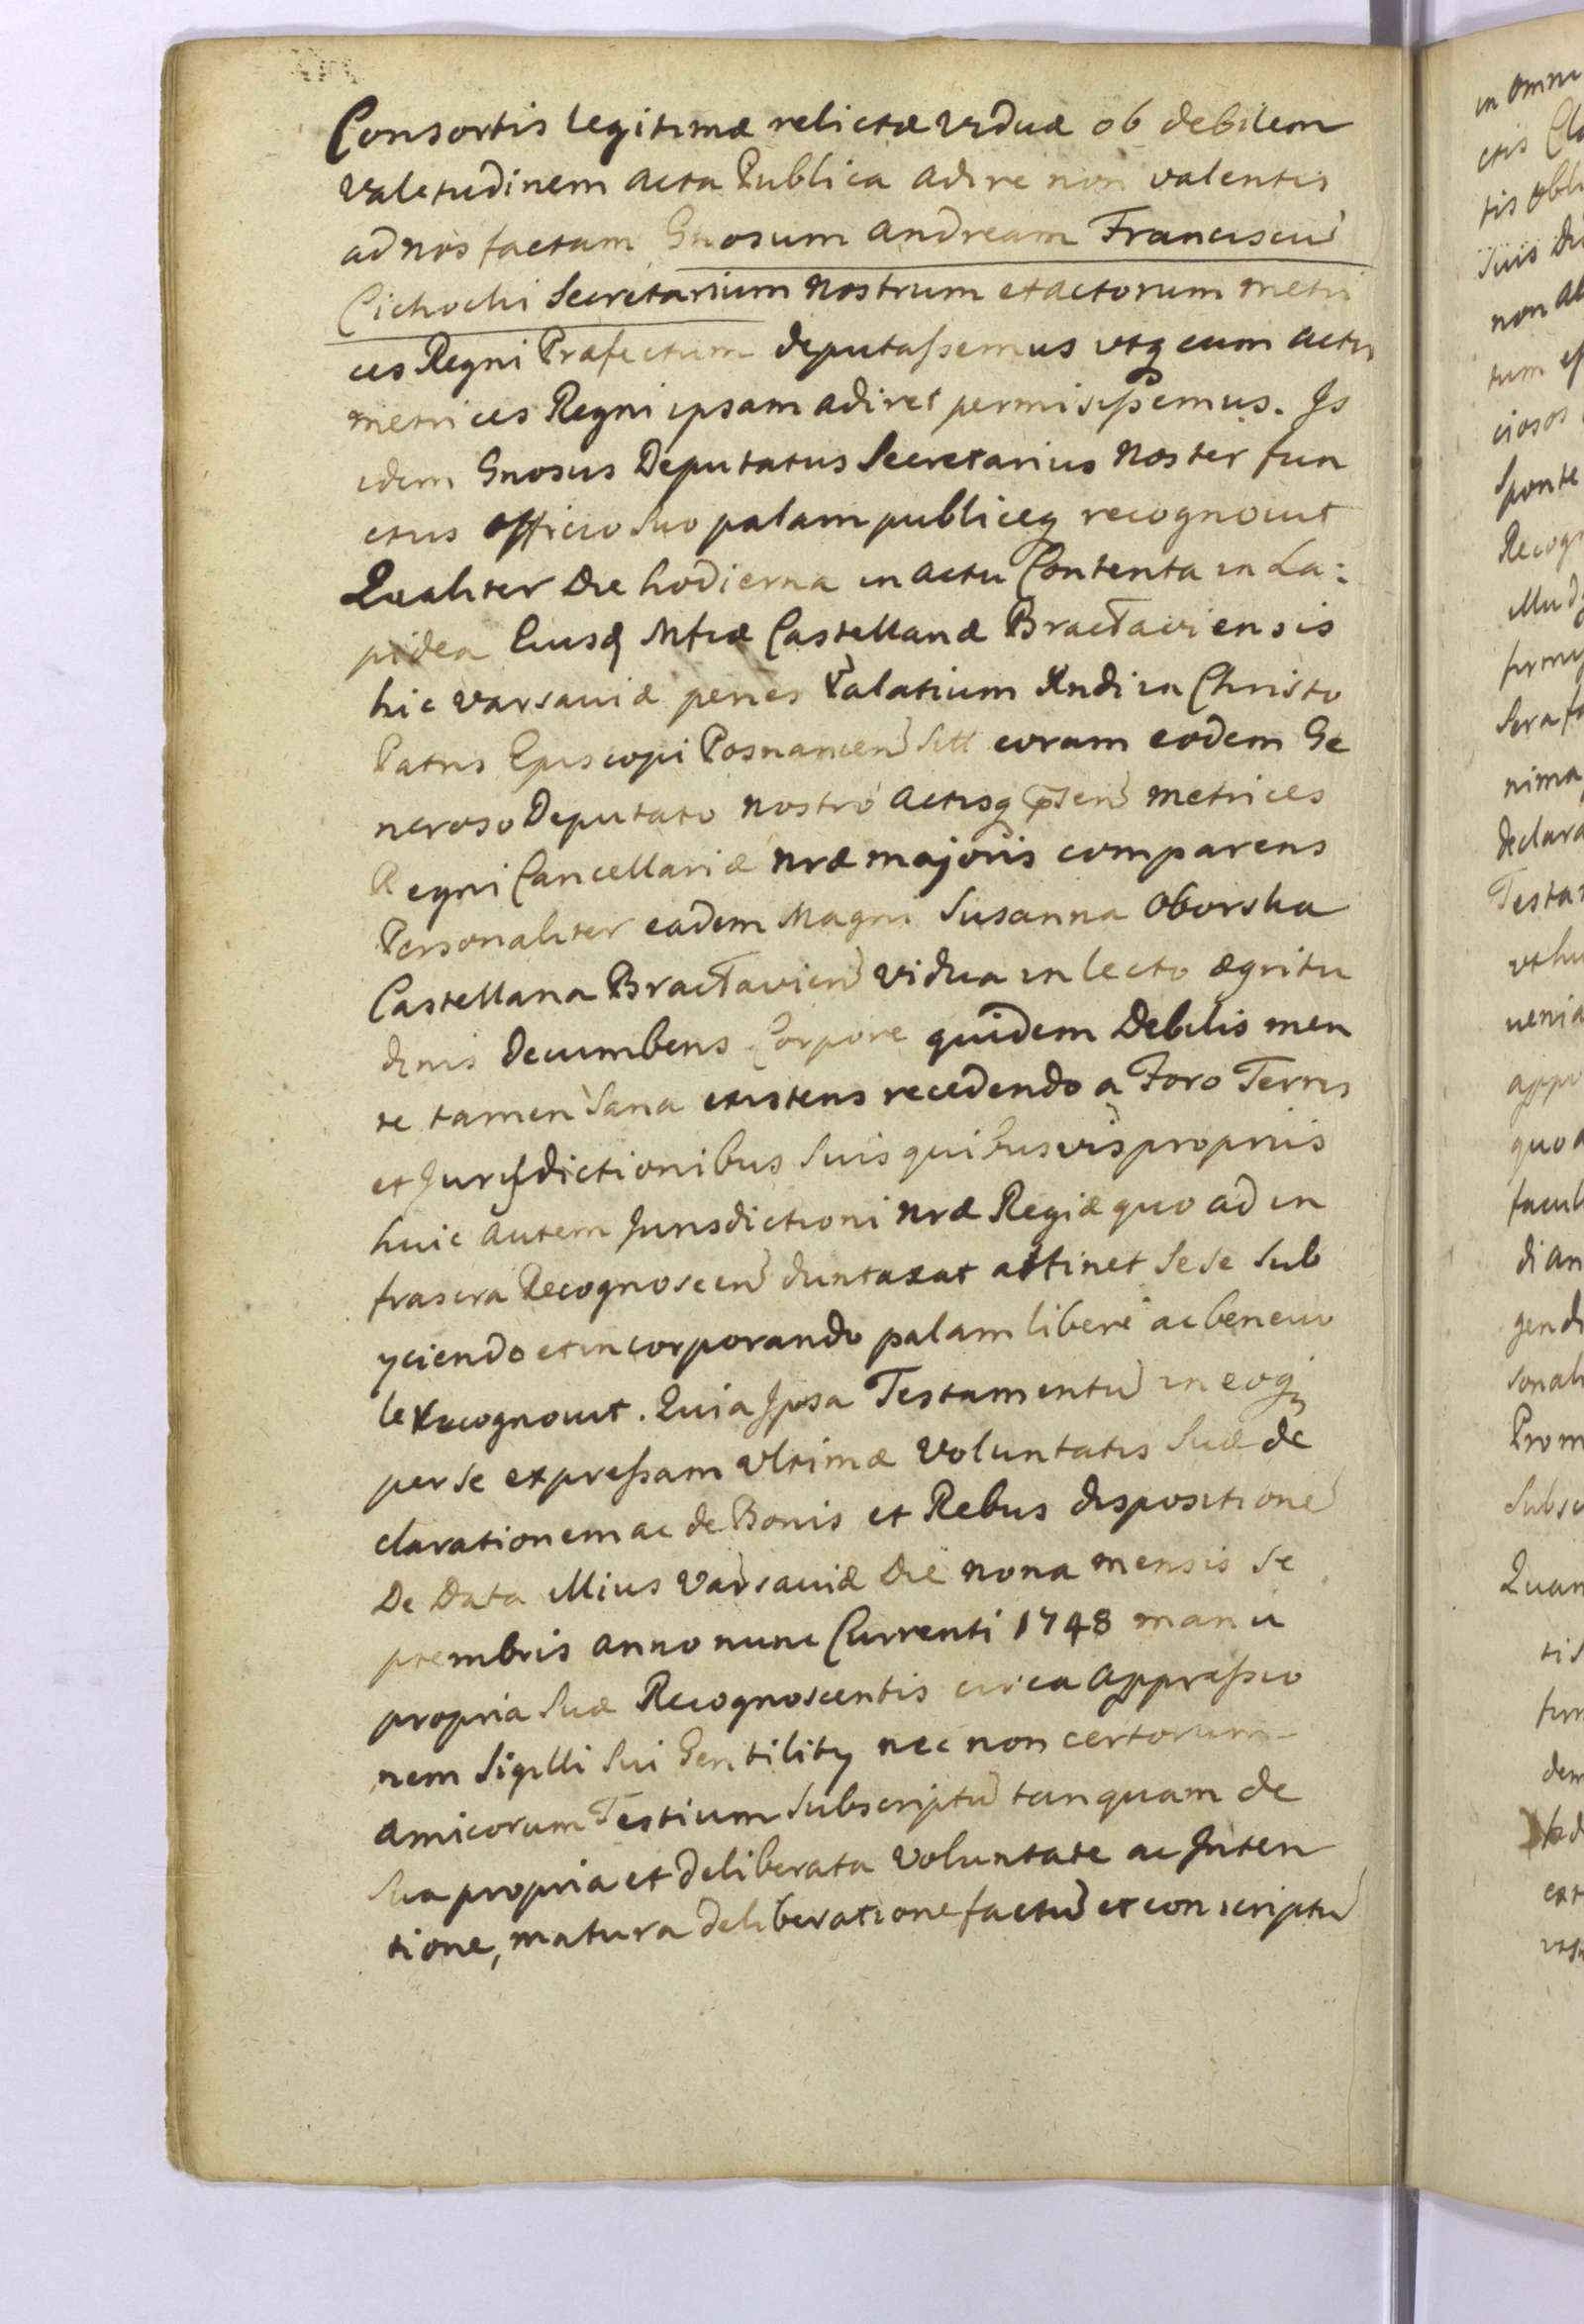 Consortis legitimæ relictæ viduæ ob debilem
valetudinem acta Publica adire non valentis
ad nos factam Gnosum Andream Franciscũ
Cichocki Secretarium nostrum et actorum metri
ces Regni Præfectum deputassemus utq eum actis
metrices Regni ipsam adiret permisissemus. Is
idem Gnosus Deputatus Secretarius Noster fun
ctus officio suo palam publiceq recognovit
Qualiter Die hodierna in actu Contenta in La:
pidea Ejusd Mfcæ Castellanæ Bractaviensis
hic Varsaviæ penes Palatium Rndi in Christo
Patris Episcopi Posnanien Sitt coram eodem Ge
neroso Deputato nostro Actisq pSen metrices
Regni Cancellariæ nræ majoris comparens
Personaliter eadem Magn Susanna Oborska
Castellana Bractavien vidua in lecto ægritu
dinis Decumbens Corpore quidem Debilis men
te tamen Sana existens recedendo a Foro Terris
et Jurisdictionibus Suis quibusvis propriis
huic autem Jurisdictioni nræ Regiæ quo ad in
frascra Recognoscen duntaxat attinet Sese Sub
yciendo et incorporando palam libere ac benevo
le recognovit. Quia Ipsa Testamentũ in eoq
per se expressam ultimæ Voluntatis Suæ de
clarationem ac de Bonis et Rebus dispositionẽ
De Data illius Varsaviæ Die nona mensis Se
ptembris anno nunc Currenti 1748 manu
propria Suæ Recognoscentis circa appressio
nem Sigilli Sui Gentility nec non certorum
amicorum Testium Subscriptũ tanquam de
Sua propria et deliberata voluntate ac Inten
tione, matura deliberatione factũ et conscriptũ